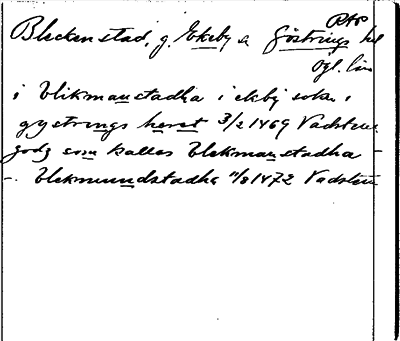 RAP
Bleckenstad, g. Ekeby sn Göstrings hd
Ögl. län
i blikmanstadha i ekby sokn i
gystrings heret 3/2 1469 Vadstena
godz som kallas blekmanstadha –
–. blekmundstadha 11/8 1472 Vadstena